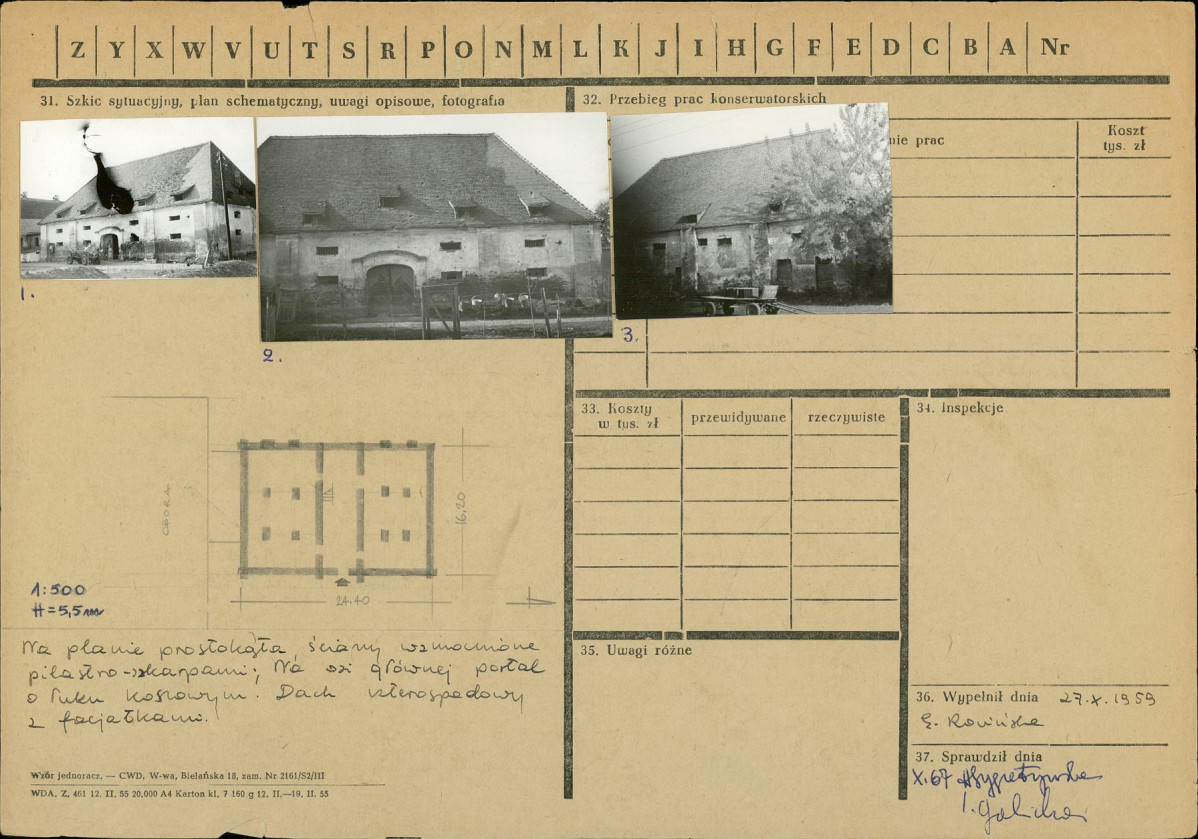 Z Y X W V U T S R P O N M L K J I H G F E D C B A Nr
31. Szkic sytuacyjny, plan schematyczny, uwagi opisowe, fotografia
32. Przebieg prac konserwatorskich
nie prac
Koszt
tys. zł
1.
2.
3.
33. Koszty
w tys. zł
przewidywane
rzeczywiste
34. Inspekcje
OBORA
16,20
24.40
1:500
H = 5,5 m
Na planie prostokąta, ściany wzmocnione
pilastro-szkarpami; Na osi głównej portal
o łuku koszowym. Dach czterospadowy
z facjatkami.
35. Uwagi różne
36. Wypełnił dnia 27.X.1959
37. Sprawdził dnia
X.67
Wzór jednoracz. — CWD, W-wa, Bielańska 18, zam. Nr 2161/S2/III
WDA. Z. 461 12. II. 55 20.000 A4 Karton kl. 7 160 g 12. II.—19. II. 55